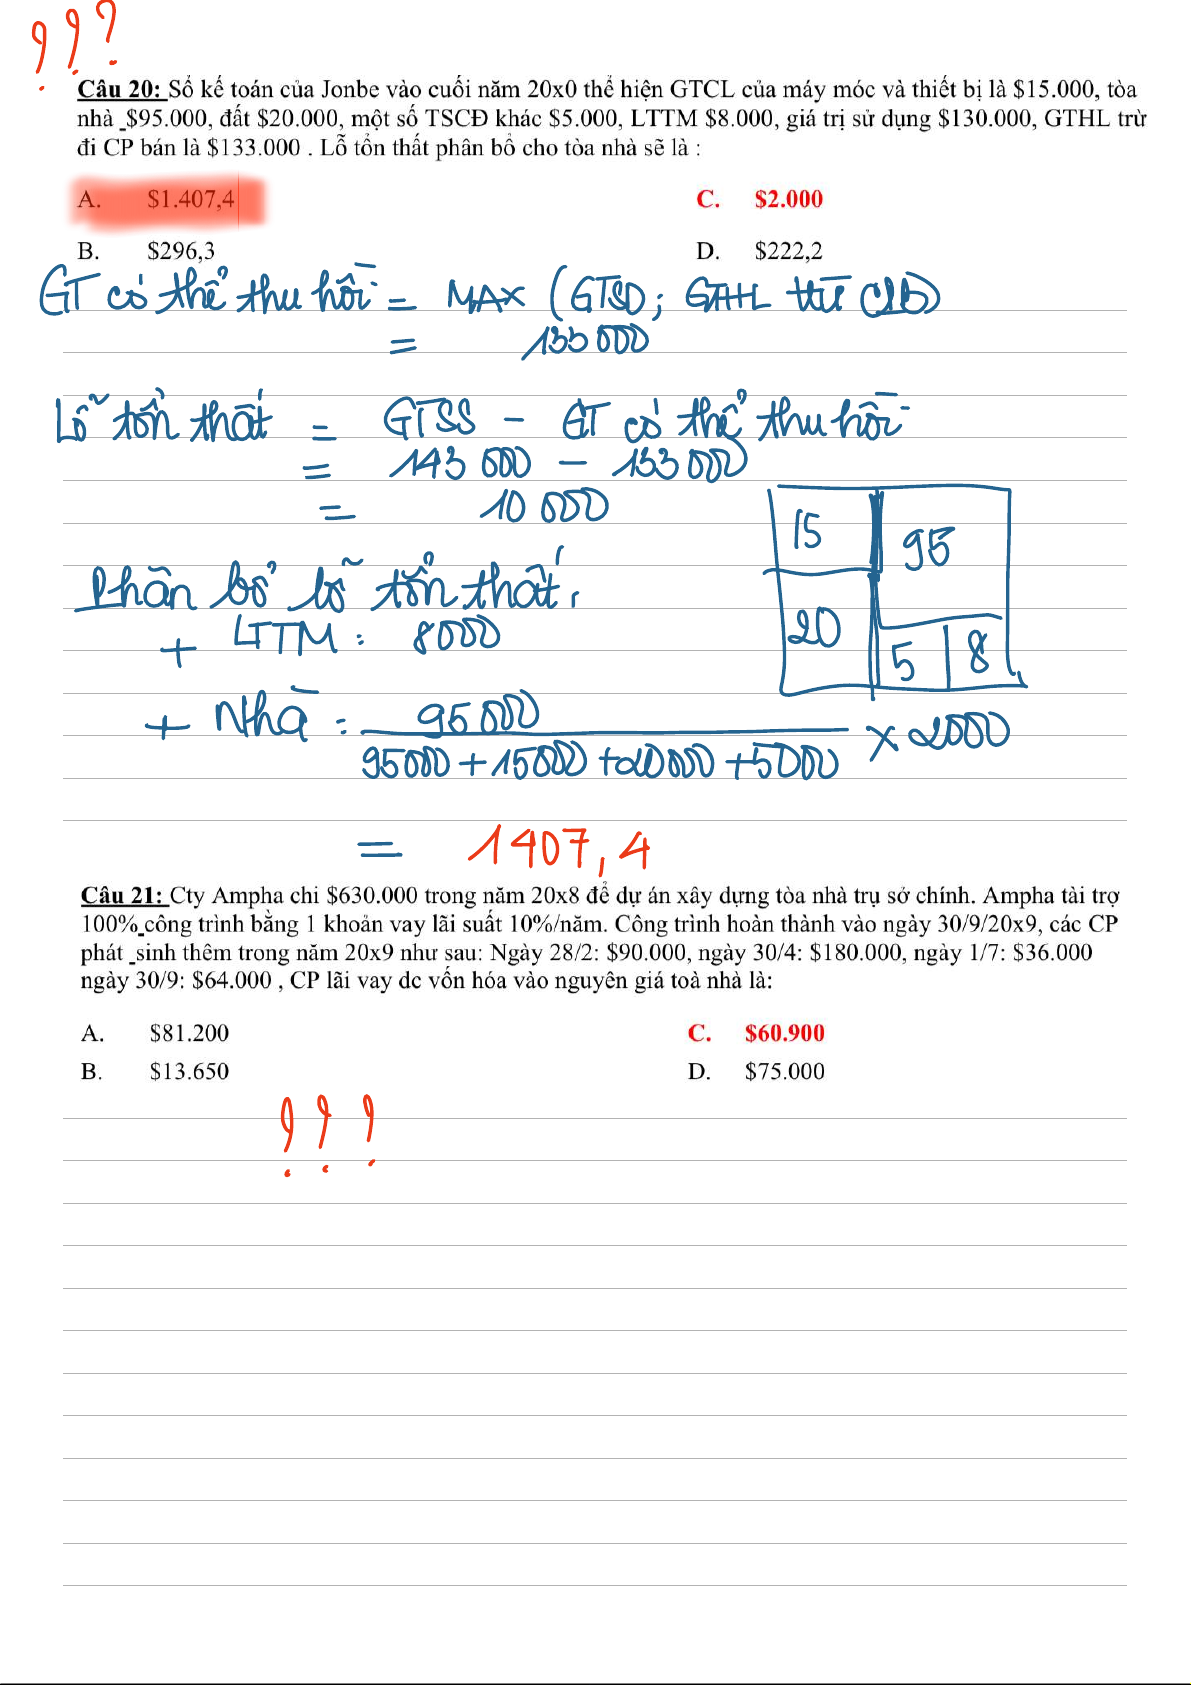 ???
Câu 20: Sổ kế toán của Jonbe vào cuối năm 20x0 thể hiện GTCL của máy móc và thiết bị là $15.000, tòa
nhà $95.000, đất $20.000, một số TSCĐ khác $5.000, LTTM $8.000, giá trị sử dụng $130.000, GTHL trừ
đi CP bán là $133.000 . Lỗ tổn thất phân bổ cho tòa nhà sẽ là :
A. $1.407,4 C. $2.000
B. $296,3 D. $222,2
GT có thể thu hồi = MAX (GTSD; GTHL trừ CPB)
= 133 000
Lỗ tổn thất = GTSS - GT có thể thu hồi
= 143 000 - 133 000
= 10 000
15 95
20 5 8
Phân bổ lỗ tổn thất:
+ LTTM : 8000
+ Nhà : 95 000
95000 + 15000 + 20 000 + 5000 x 2000
= 1407,4
Câu 21: Cty Ampha chi $630.000 trong năm 20x8 để dự án xây dựng tòa nhà trụ sở chính. Ampha tài trợ
100% công trình bằng 1 khoản vay lãi suất 10%/năm. Công trình hoàn thành vào ngày 30/9/20x9, các CP
phát sinh thêm trong năm 20x9 như sau: Ngày 28/2: $90.000, ngày 30/4: $180.000, ngày 1/7: $36.000
ngày 30/9: $64.000 , CP lãi vay dc vốn hóa vào nguyên giá toà nhà là:
A. $81.200 C. $60.900
B. $13.650 D. $75.000
???